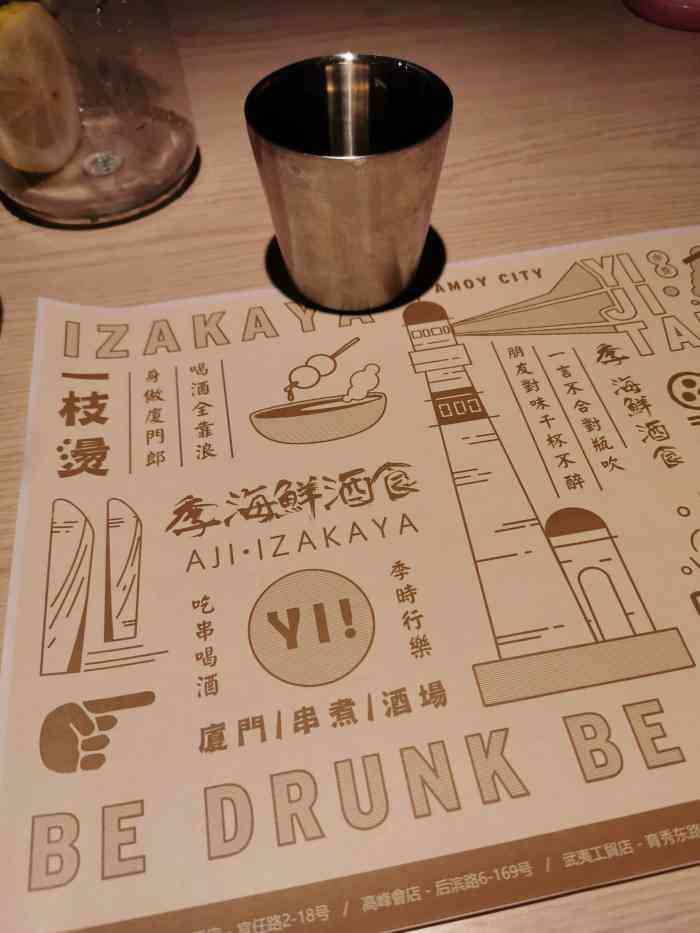 IZAKAYA
AMOY CITY
YI
JI
TA
一枝燙
身做廈門郎
喝酒全靠浪
朋友對味千杯不醉
一言不合對瓶吹
季海鮮酒食
季海鮮酒食
AJI·IZAKAYA
吃串喝酒
YI!
季時行樂
廈門/串煮/酒場
BE DRUNK BE
官任路2-18号 / 高峰會店 - 后滨路6-169号 / 武夷工貿店 - 育秀东路